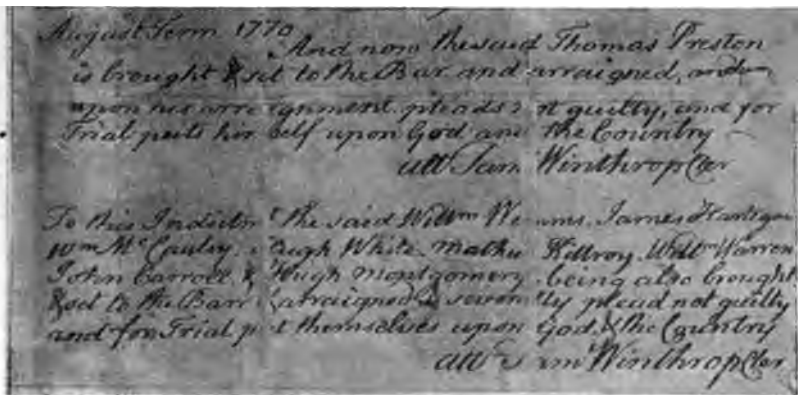 August Term 1770
And now the said Thomas Preston
is brought & set to the Bar and arraigned, and
upon his arraignment pleads not guilty, and for
Trial puts himself upon God and the Country
att Sam Winthrop Cler
To this Indictmt the said Willm Wemms, James Hartigan
Wm McCauley, Hugh White, Mathew Killroy, Willm Warren
John Carroll & Hugh Montgomery being also brought
& set to the Barr & arraigned severally plead not guilty
and for Trial put themselves upon God & the Country
att Sam Winthrop Cler